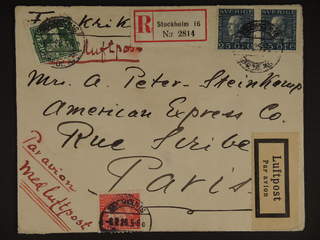 Frankrike
Luftpost
R
Stockholm 16
No 2814
SVERIGE
SVERIGE
Mrs. A. Peter-Steinkamp
American Express Co.
Rue Scribe
Paris
Par avion
med luftpost
Luftpost
Par avion